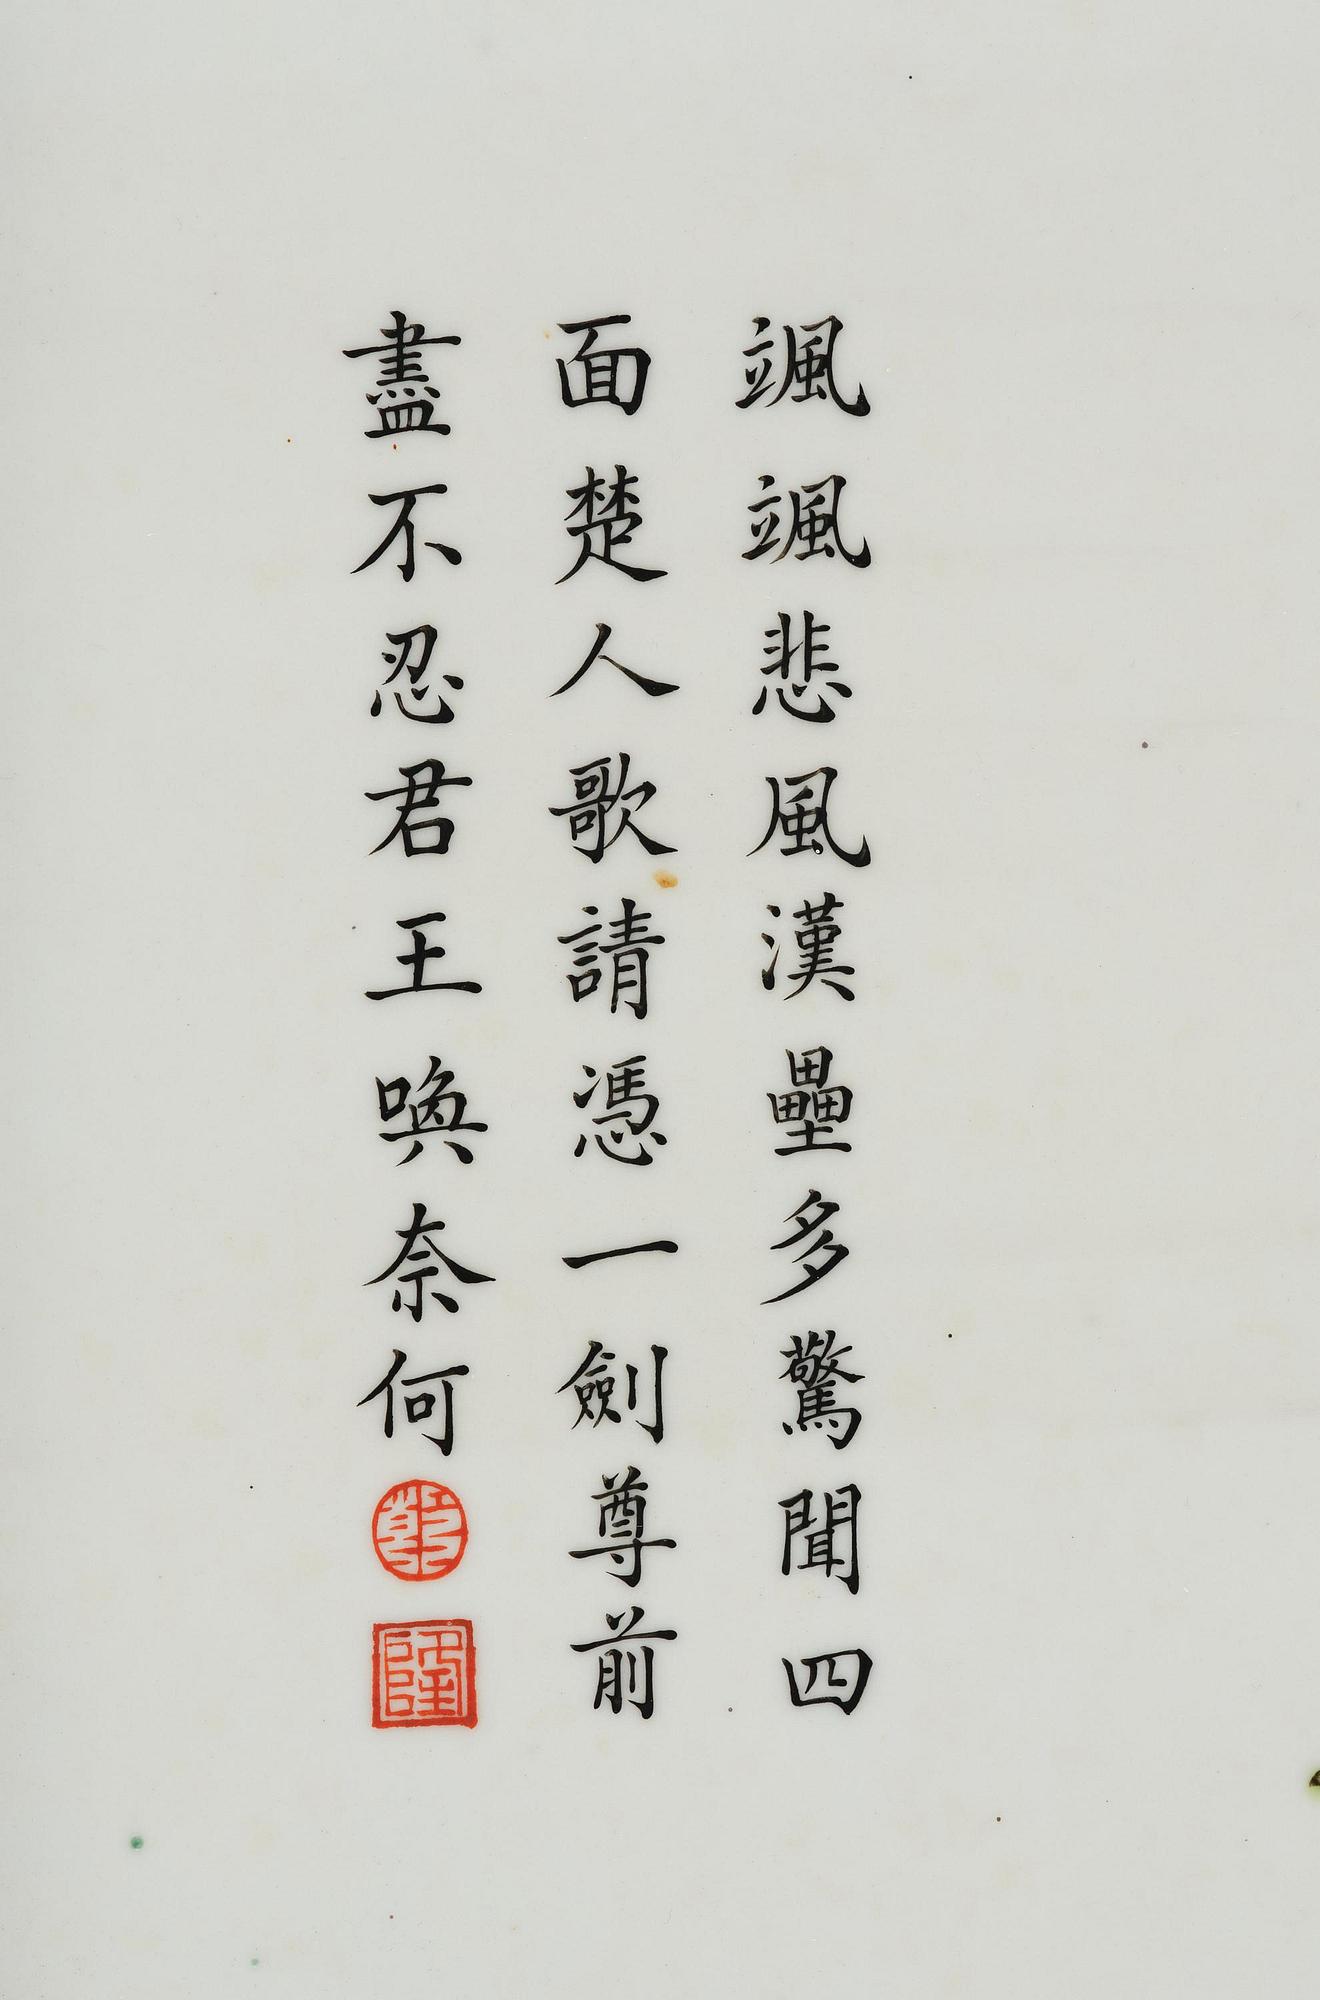 颯颯悲風漢壘多驚聞四
面楚人歌請憑一劍尊前
盡不忍君王喚奈何
乾
隆